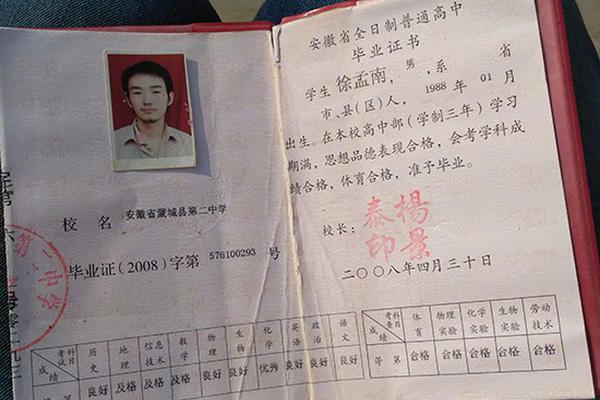 校名 安徽省蒙城县第二中学
毕业证(2008)字第 576100293 号
考试科目 历史 地理 信息技术 数学 物理 生物 化学 英语 政治 语文
成绩 良好 及格 及格 及格 良好 良好 优秀 良好 良好 良好
安徽省全日制普通高中
毕业证书
学生 徐孟南,男,系 省
市、县(区)人,1988 年 01 月
出生。在本校高中部(学制三年)学习
期满,思想品德表现合格,会考学科成
绩合格,体育合格,准予毕业。
校长:
杨景
泰印
二〇〇八年四月三十日
考查科目 体育 物理实验 化学实验 生物实验 劳动技术
成绩 等第 合格 合格 合格 合格 合格
第二中学